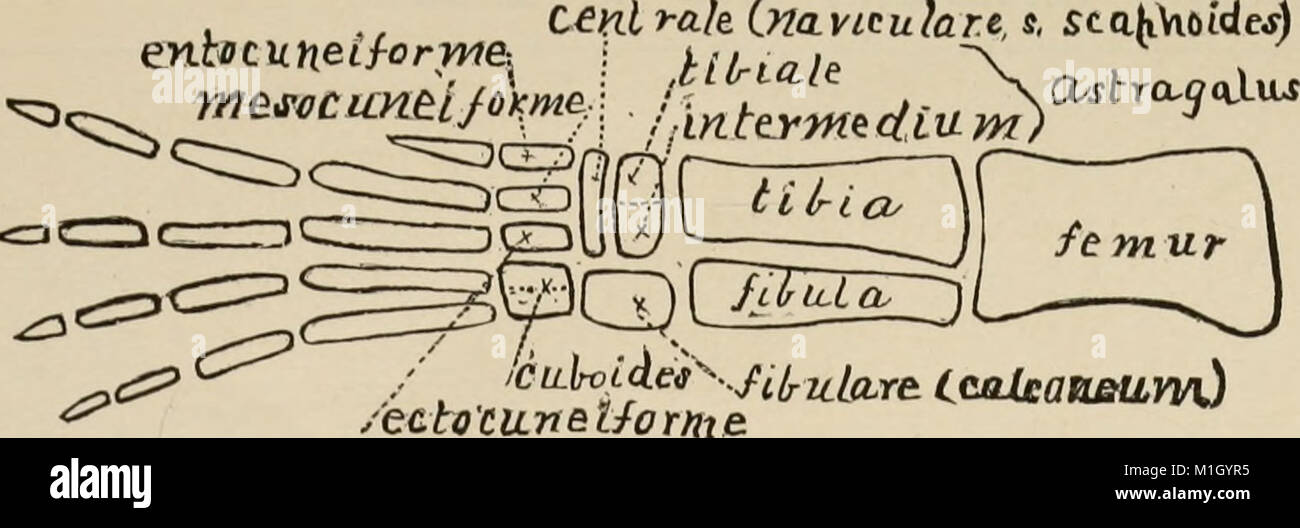 centrale (naviculare, s. scaphoides)
entocuneiforme
tibiale
mesocuneiforme
astragalus
intermedium)
tibia
femur
fibula
cuboides
fibulare (calcaneum)
ectocuneiforme
alamy
alamy
Image ID: M1GYR5
www.alamy.com